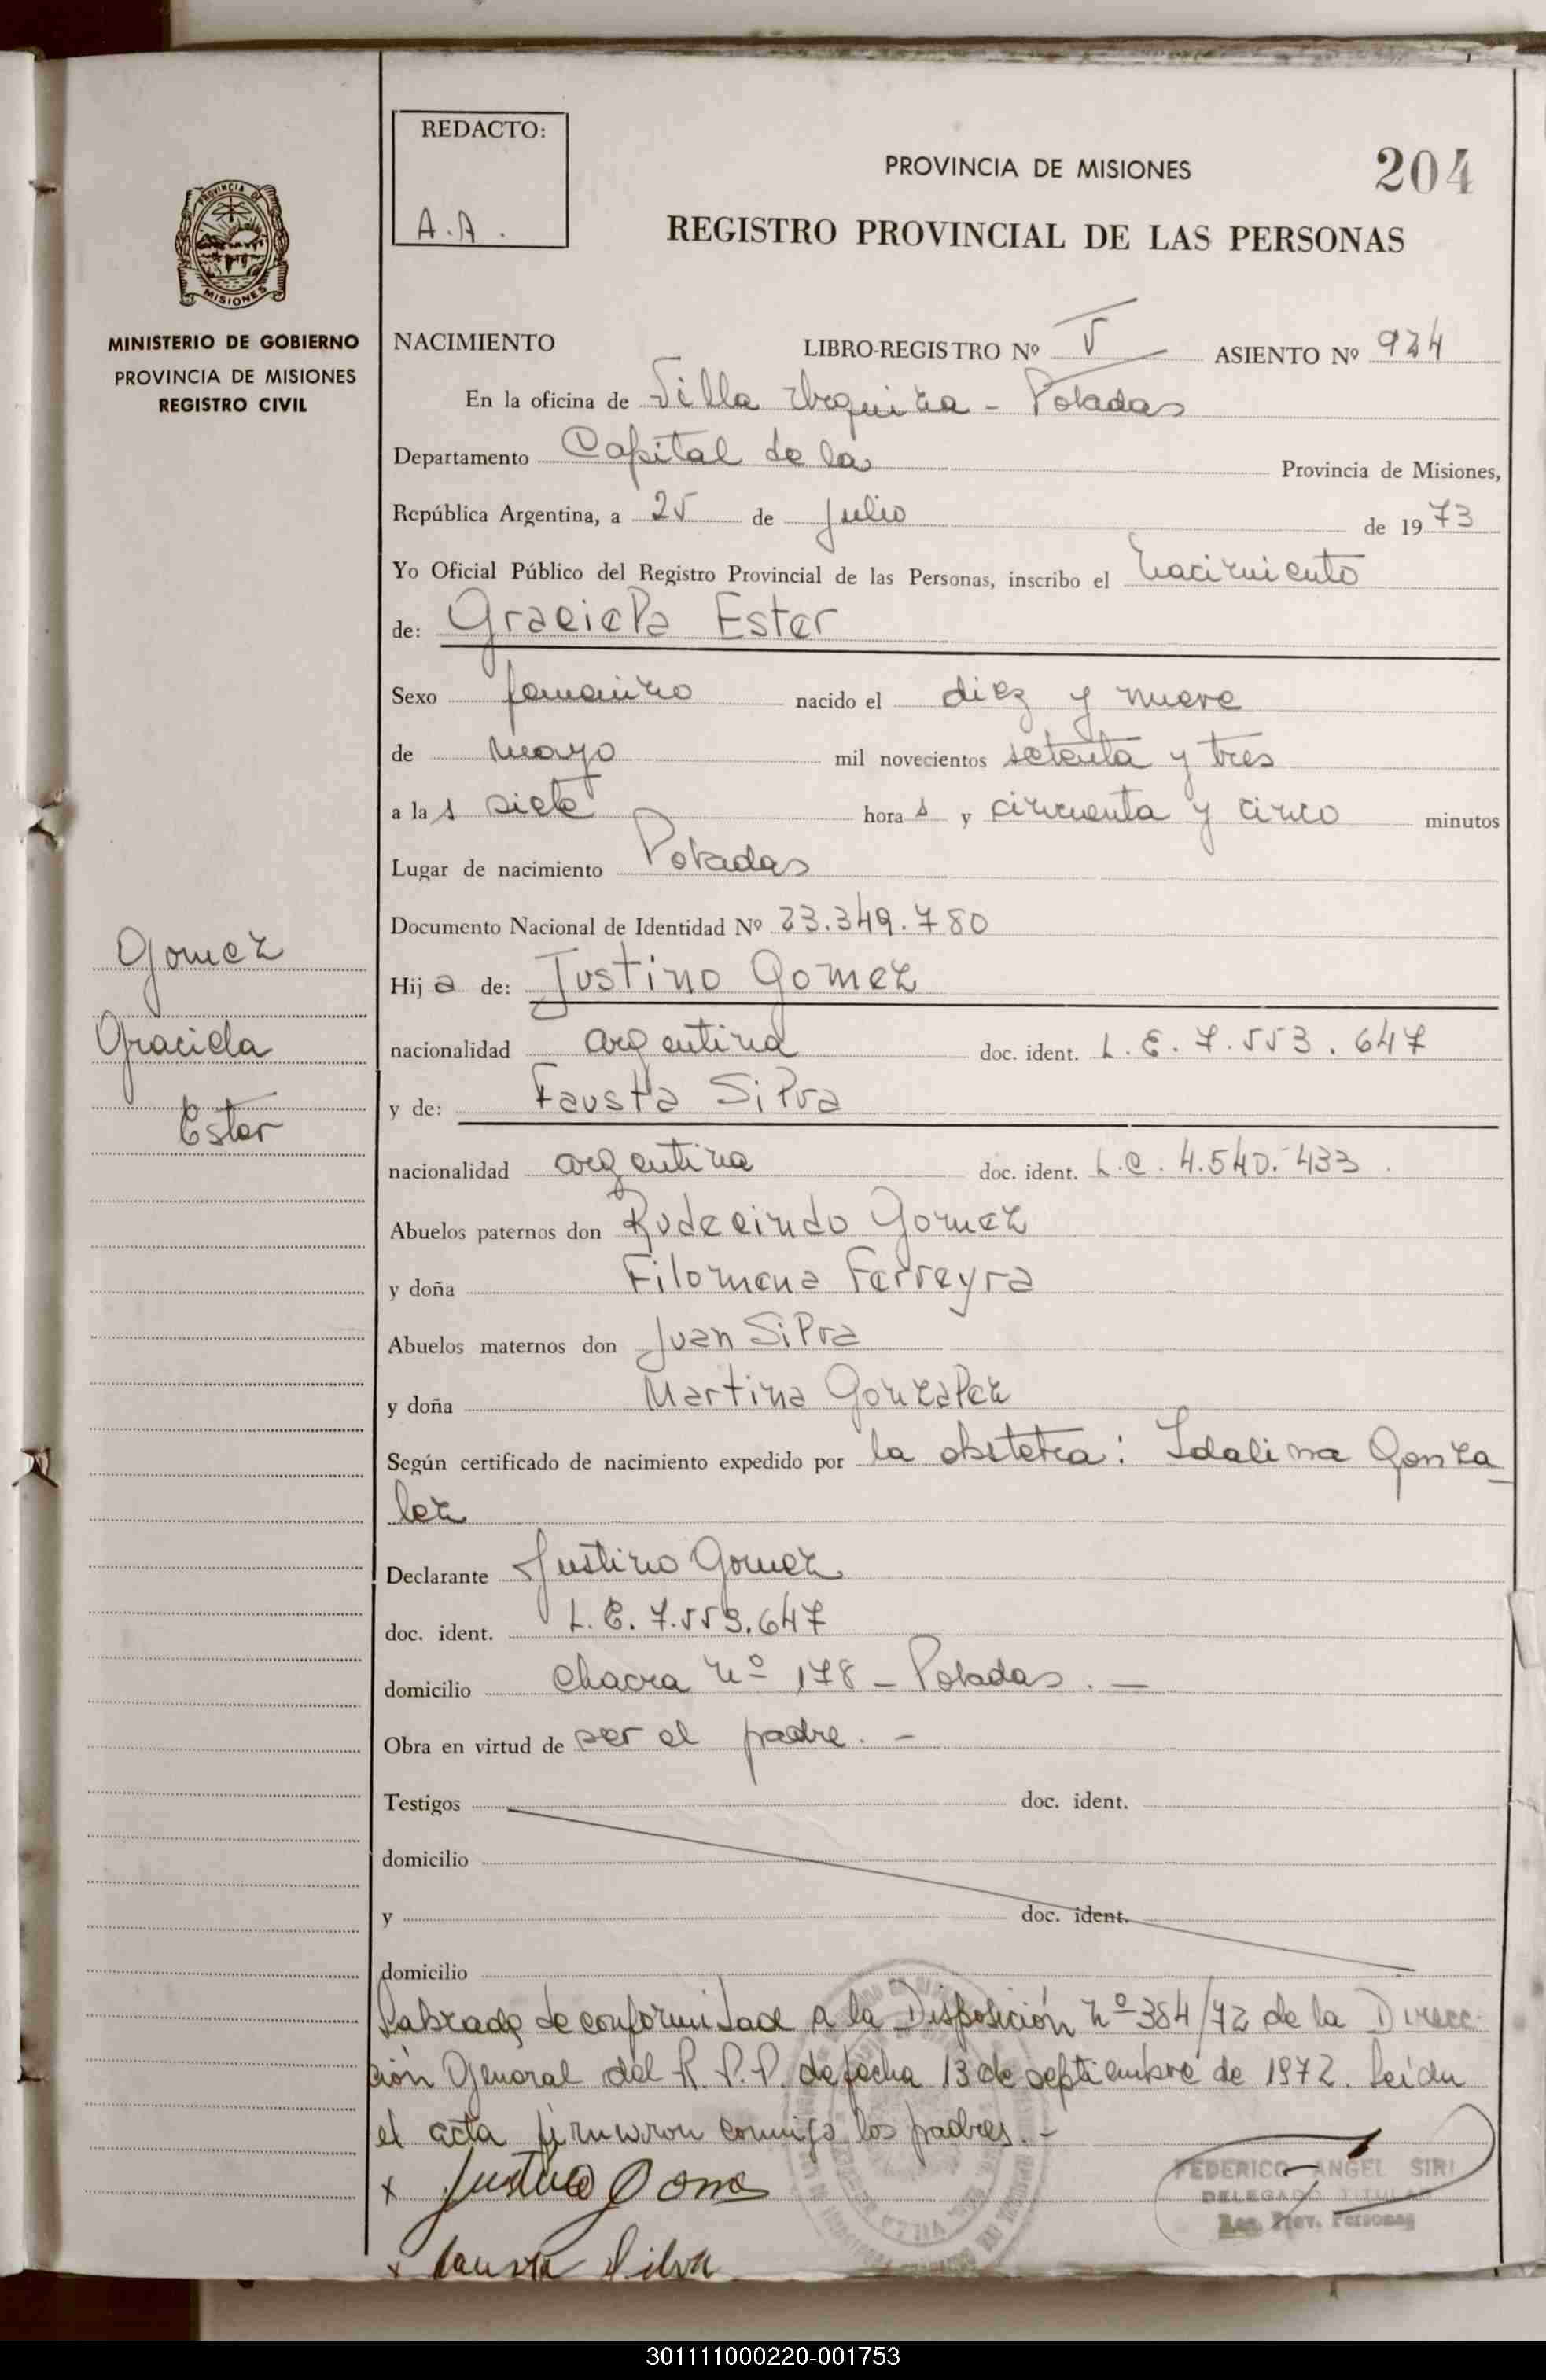 REDACTO:
A.A.
PROVINCIA DE MISIONES
204
REGISTRO PROVINCIAL DE LAS PERSONAS
PROVINCIA DE
MISIONES
MINISTERIO DE GOBIERNO
PROVINCIA DE MISIONES
REGISTRO CIVIL
NACIMIENTO LIBRO-REGISTRO Nº V ASIENTO Nº 924
En la oficina de Villa Urquiza - Posadas
Departamento Capital de la Provincia de Misiones,
República Argentina, a 25 de Julio de 1973
Yo Oficial Público del Registro Provincial de las Personas, inscribo el nacimiento
de: Graciela Ester
Sexo femenino nacido el diez y nueve
de mayo mil novecientos setenta y tres
a las siete horas y cincuenta y cinco minutos
Lugar de nacimiento Posadas
Documento Nacional de Identidad Nº 23.349.780
Gomez
Graciela
Ester
Hija de: Justino Gomez
nacionalidad argentina doc. ident. L.E. 7.553.647
y de: Fausta Silva
nacionalidad argentina doc. ident. L.C. 4.540.433.
Abuelos paternos don Rudecindo Gomez
y doña Filomena Ferreyra
Abuelos maternos don Juan Silva
y doña Martina Gonzalez
Según certificado de nacimiento expedido por la obstetra: Idalina Gonza-
lez
Declarante Justino Gomez
doc. ident. L.E. 7.553.647
domicilio Chacra nº 178 - Posadas. -
Obra en virtud de ser el padre. -
Testigos doc. ident.
domicilio
y doc. ident.
domicilio
Labrada de conformidad a la Disposición nº 384/72 de la Direc-
ción General del R.P.P. de fecha 13 de septiembre de 1972. Leída
el acta firmaron conmigo los padres. -
x Justino Gome
x Fausta Silva
FEDERICO ANGEL SIRI
DELEGADO TITULAR
Reg. Prov. Personas
301111000220-001753